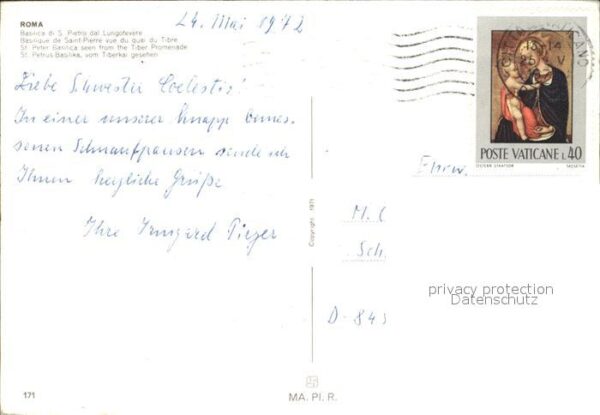 ROMA
Basilica di S. Pietro dal Lungotevere
Basilique de Saint-Pierre vue du quai du Tibre
St. Peter Basilica seen from the Tiber Promenade
St. Petrus Basilika, vom Tiberkai gesehen
24. Mai 1972
Liebe Schwester Coelestis!
In einer unserer knapp bemes-
senen Schnaufpausen sende ich
Ihnen herzliche Grüße
Ihre Irmgard
POSTE VATICANE L. 40
Ehrw.
M. C
Sch.
D-845
Copyright 1971
privacy protection
Datenschutz
171
MA. PI. R.